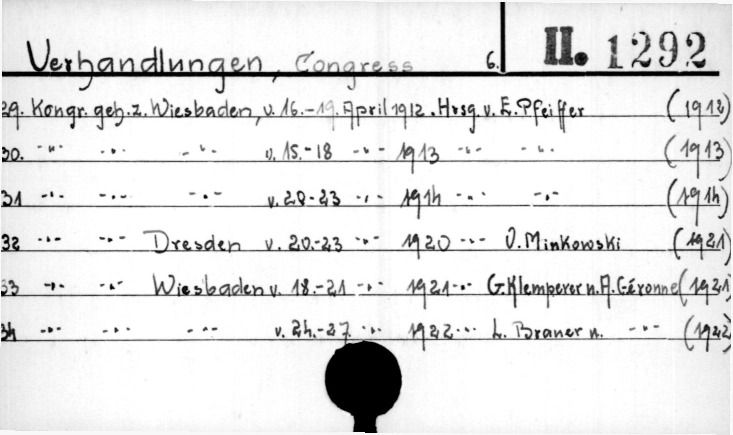 Verhandlungen, Congress 6. II. 1292
29. Kongr. geh. z. Wiesbaden, v. 16.-19. April 1912. Hrsg. v. E. Pfeiffer (1912)
30. -"- -"- -"- v. 15.-18 -"- 1913 -"- -"- (1913)
31 -"- -"- -"- v. 20-23 -"- 1914 -"- -"- (1914)
32 -"- -"- Dresden v. 20.-23 -"- 1920 -"- O. Minkowski (1921)
33 -"- -"- Wiesbaden v. 18.-21 -"- 1921 -"- G. Klemperer u. A. Géronne (1921)
34 -"- -"- -"- v. 24.-27. -"- 1922 -"- L. Brauer u. -"- (1922)